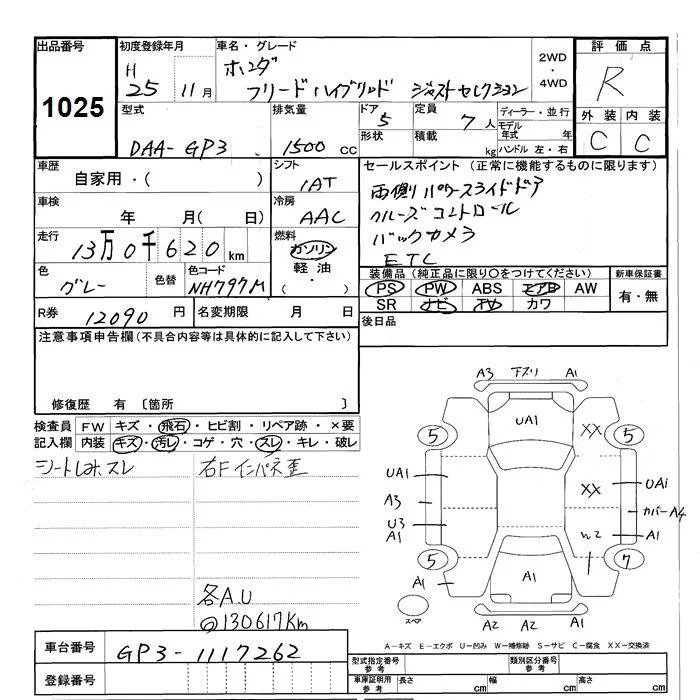 出品番号
1025
初度登録年月
H 25年 11月
車名・グレード
ホンダ
フリードハイブリッド ジャストセレクション
2WD
・
4WD
評価点
R
外装 内装
C C
型式
DAA-GP3
排気量
1500 cc
ドア
5
形状
定員
7人
積載
kg
ディーラー・並行
モデル年式 年
ハンドル 左・右
車歴
自家用・( )
シフト
IAT
車検
年 月( 日)
冷房
AAC
走行
13万0千620 km
燃料
ガソリン
軽油
・
( )
色
グレー
色替
色コード
NH797M
R券 12090 円
名変期限 月 日
セールスポイント(正常に機能するものに限ります)
両側パワースライドドア
クルーズコントロール
バックカメラ
ETC
装備品(純正品に限り○をつけてください)
PS PW ABS エアB AW
SR ナビ TV カワ
新車保証書
有・無
後日品
注意事項申告欄(不具合内容等は具体的に記入して下さい)
修復歴 有 〔箇所 〕
検査員記入欄
FW キズ・飛石・ヒビ割・リペア跡・×要
内装 キズ・汚レ・コゲ・穴・スレ・キレ・破レ
シートしみ、スレ
右Fインパネ歪
各A.U
130617Km
A3 下スリ A1
UA1
5
XX
5
UA1
A3
U3
A1
XX
UA1
カバーA4
A1
W2
5
7
A1
A1
スペア
A2 A2 A1
A-キズ E-エクボ U-凹み W-補修跡 S-サビ C-腐食 XX-交換済
車台番号
GP3-1117262
登録番号
型式指定番号 参考
類別区分番号 参考
車庫証明用 参考
長さ cm
幅 cm
高さ cm